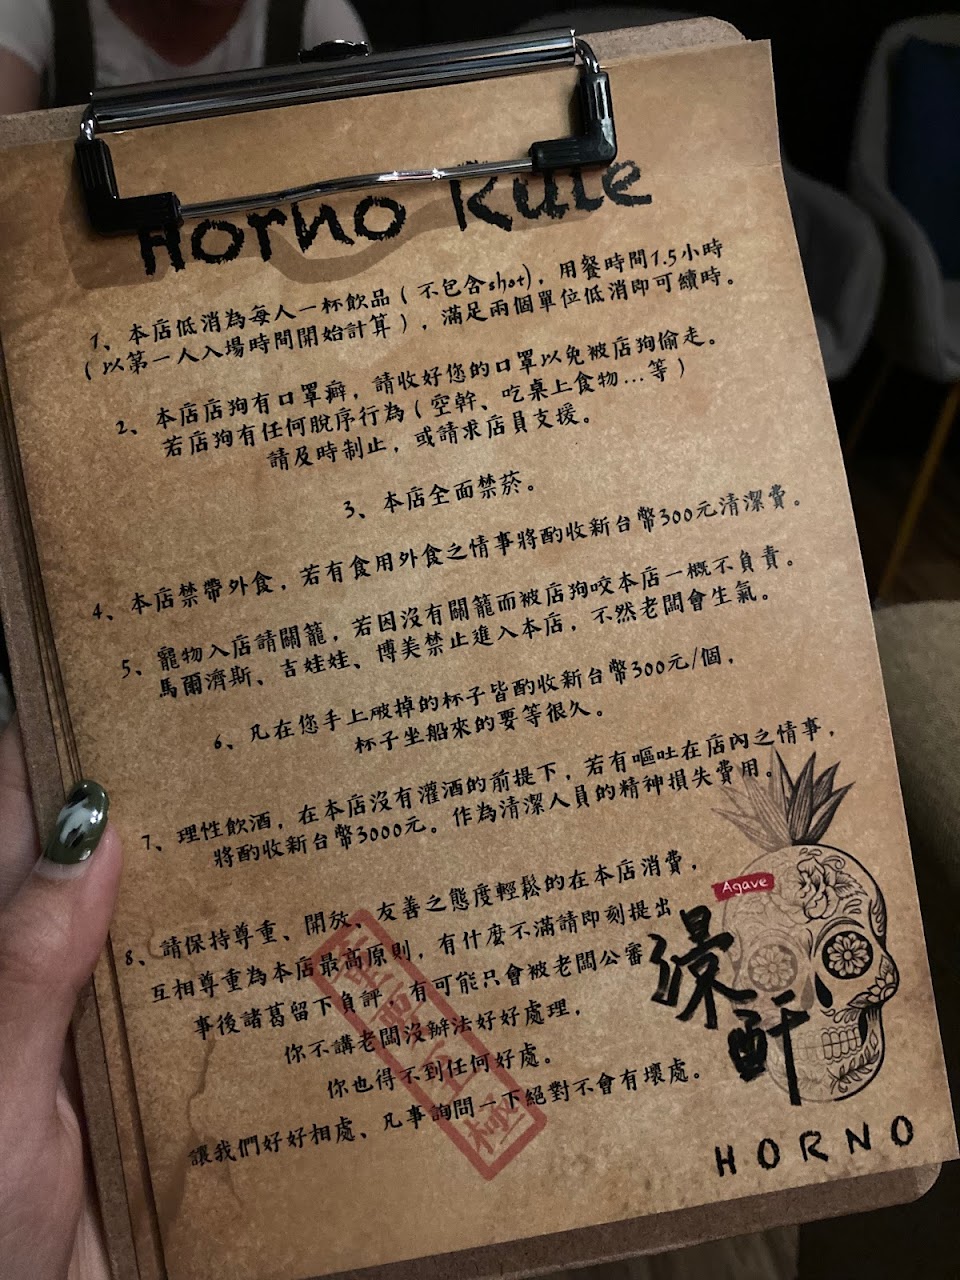 Horno Rule
1、本店低消為每人一杯飲品（不包含shot），用餐時間1.5小時
（以第一人入場時間開始計算），滿足兩個單位低消即可續時。
2、本店店狗有口罩癖，請收好您的口罩以免被店狗偷走。
若店狗有任何脫序行為（空幹、吃桌上食物...等）
請及時制止，或請求店員支援。
3、本店全面禁菸。
4、本店禁帶外食，若有食用外食之情事將酌收新台幣300元清潔費。
5、寵物入店請關籠，若因沒有關籠而被店狗咬本店一概不負責。
馬爾濟斯、吉娃娃、博美禁止進入本店，不然老闆會生氣。
6、凡在您手上破掉的杯子皆酌收新台幣300元/個，
杯子坐船來的要等很久。
7、理性飲酒，在本店沒有灌酒的前提下，若有嘔吐在店內之情事，
將酌收新台幣3000元。作為清潔人員的精神損失費用。
8、請保持尊重、開放、友善之態度輕鬆的在本店消費，
互相尊重為本店最高原則，有什麼不滿請即刻提出
事後諸葛留下負評，有可能只會被老闆公審
你不講老闆沒辦法好好處理，
你也得不到任何好處。
讓我們好好相處、凡事詢問一下絕對不會有壞處。
Agave
HORNO